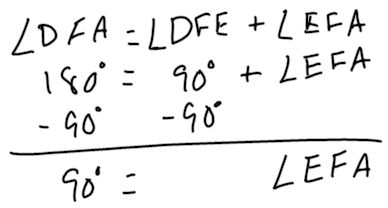 ∠DFA = ∠DFE + ∠EFA
180° = 90° + ∠EFA
-90° -90°
90° = ∠EFA